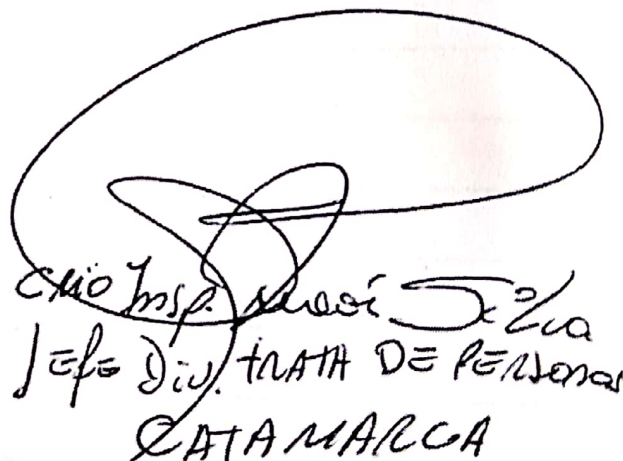 CRIO Insp. Silva
Jefe Div. TRATA DE PERSONAS
CATAMARCA